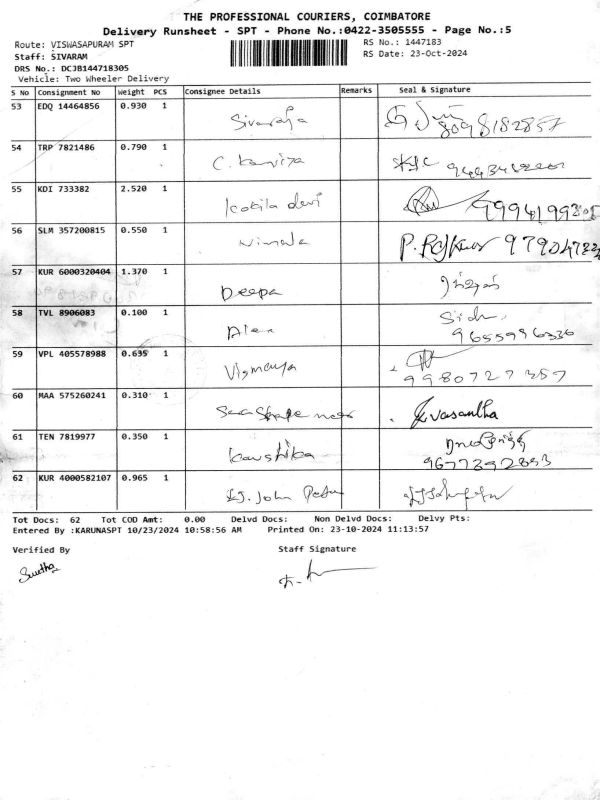 THE PROFESSIONAL COURIERS, COIMBATORE
Delivery Runsheet - SPT - Phone No.:0422-3505555 - Page No.:5
Route: VISWASAPURAM SPT RS No.: 1447183
Staff: SIVARAM RS Date: 23-Oct-2024
DRS No.: DCJB144718305
Vehicle: Two Wheeler Delivery
S No Consignment No Weight PCS Consignee Details Remarks Seal & Signature
53 EDQ 14464856 0.930 1 Sivaraja 8098182857
54 TRP 7821486 0.790 1 C. Kaviya
55 KDI 733382 2.520 1 Kokila devi
56 SLM 357200815 0.550 1 Nimala P. Rajkumar
57 KUR 6000320404 1.370 1 Deepa
58 TVL 8906083 0.100 1 Alex
9655996336
59 VPL 405578988 0.635 1 Vismaya
9980727357
60 MAA 575260241 0.310 1 Vasantha
61 TEN 7819977 0.350 1 Kaushika
9677392853
62 KUR 4000582107 0.965 1 John Peter
Tot Docs: 62 Tot COD Amt: 0.00 Delvd Docs: Non Delvd Docs: Delvy Pts:
Entered By :KARUNASPT 10/23/2024 10:58:56 AM Printed On: 23-10-2024 11:13:57
Verified By Staff Signature
Swetha